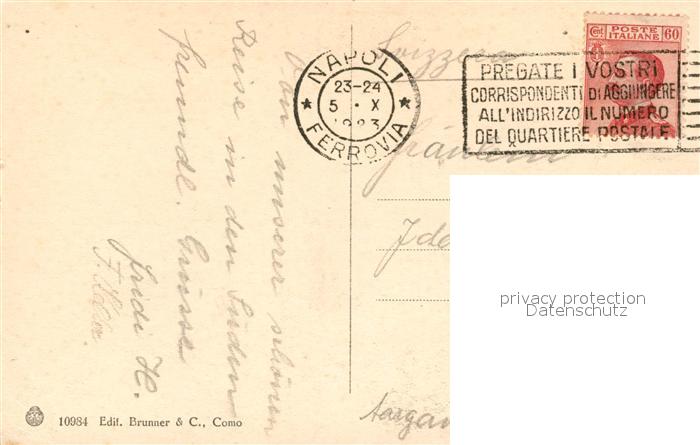 Von unserer schönen
Reise in den Süden
freundl. Grüsse
Fridi H.
10984 Edit. Brunner & C., Como
Svizzera
NAPOLI
23-24
5 · X
1923
FERROVIA
Cent POSTE ITALIANE 60
PREGATE I VOSTRI
CORRISPONDENTI DI AGGIUNGERE
ALL'INDIRIZZO IL NUMERO
DEL QUARTIERE POSTALE
Fräulein
Ida
Aargau
privacy protection
Datenschutz